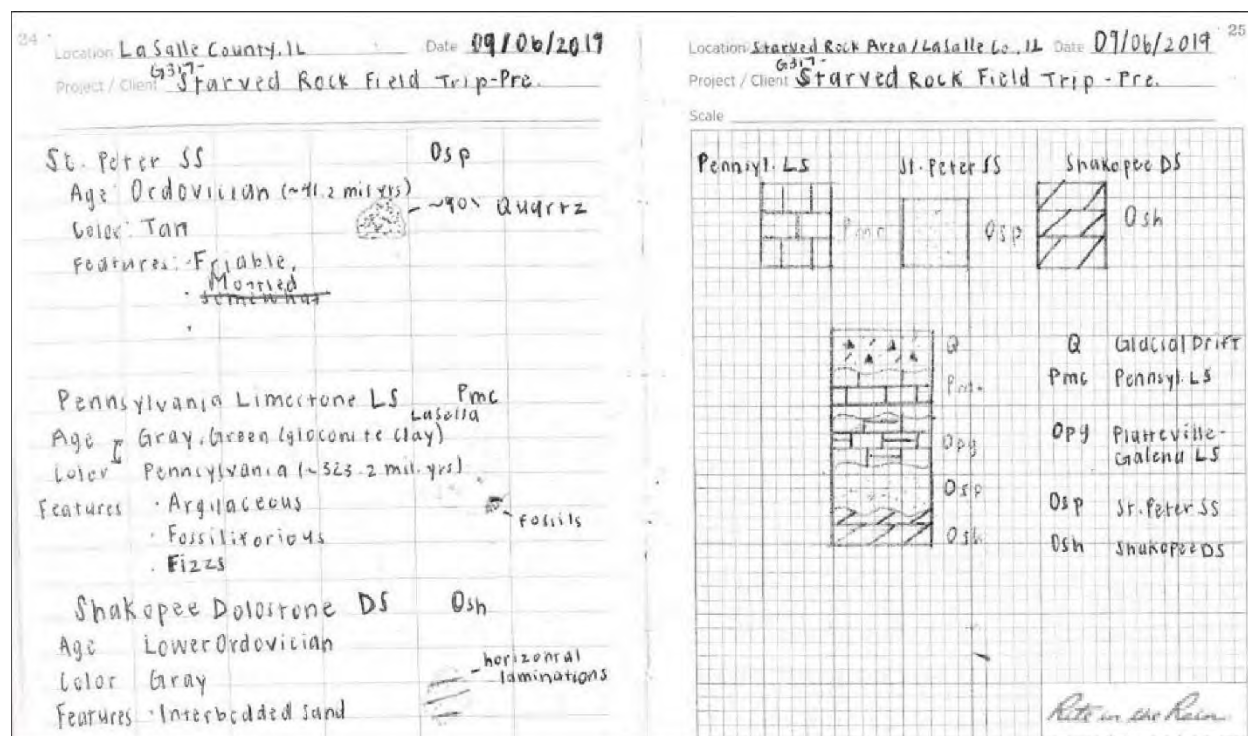 24
Location LaSalle County, IL Date 09/06/2019
Project / Client G317- Starved Rock Field Trip-Pre.
St. Peter SS Osp
Age: Ordovician (~41.2 mil yrs)
~90% Quartz
Color: Tan
Features: Friable,
Mottled
somewhat
Pennsylvania Limestone LS Pmc
LaSalla
Age Gray, Green (gloconite clay)
Color Pennsylvania (~323.2 mil. yrs)
Features · Argilaceous
fossils
· Fossiliforious
· Fizzs
Shakopee Dolostone DS Osh
Age Lower Ordovician
horizontal
laminations
Color Gray
Features · Interbedded Sand
25
Location Starved Rock Area/LaSalle Co., IL Date 09/06/2019
Project / Client G317- Starved Rock Field Trip - Pre.
Scale
Pennsyl. LS St. Peter SS Shakopee DS
Pmc Osp Osh
Q Q Glacial Drift
Pmc Pmc Pennsyl. LS
Opg Opg Platteville-
Galena LS
Osp Osp St. Peter SS
Osh Osh Shakopee DS
Rite in the Rain